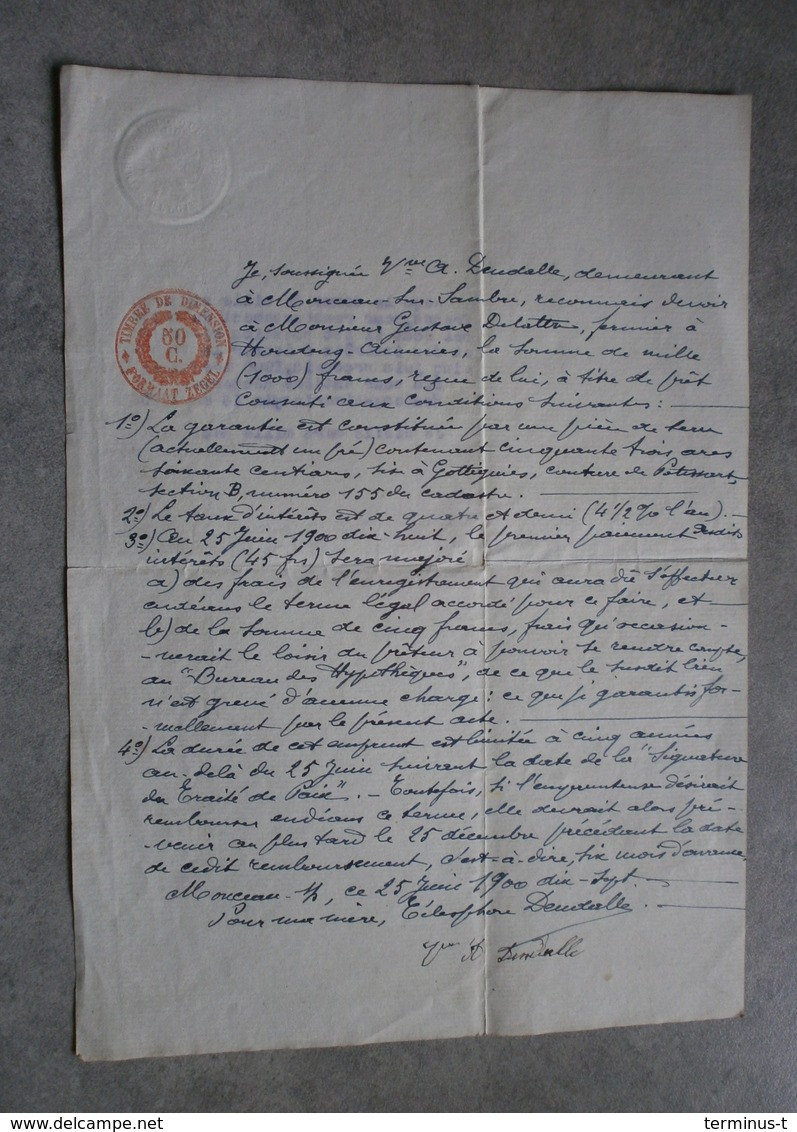 Je, soussignée Vve A. Dendalle, demeurant
à Monceau-sur-Sambre, reconnais devoir
à Monsieur Gustave Delattre, fermier à
Houdeng-Aimeries, la somme de mille
(1000) francs, reçue de lui, à titre de prêt
consenti aux conditions suivantes :
TIMBRE DE DIMENSION
60
C.
FORMAAT ZEGEL
1o) La garantie est constituée par une pièce de terre
(actuellement un pré) contenant cinquante trois ares
soixante centiares, sis à Gottignies, couture de
section B, numéro 155 du cadastre.
2o) Le taux d'intérêts est de quatre et demi (4 1/2 % l'an).
3o) Au 25 Juin 1900 dix-huit, le premier paiement desdits
intérêts (45 frs) sera majoré
a) des frais de l'enregistrement qui aura dû s'effectuer
endéans le terme légal accordé pour ce faire, et
b) de la somme de cinq francs, frais qu'occasion-
-nerait le loisir du prêteur à pouvoir se rendre compte,
au "Bureau des Hypothèques", de ce que le susdit bien
n'est grevé d'aucune charge : ce que je garantis for-
-mellement par le présent acte.
4o) La durée de cet emprunt est limitée à cinq années
au-delà du 25 Juin suivant la date de la "Signature
du Traité de Paix". - Toutefois, si l'emprunteuse désirait
rembourser endéans ce terme, elle devrait alors pré-
-venir au plus tard le 25 décembre précédant la date
de cedit remboursement, c'est-à-dire, six mois d'avance.
Monceau s/s, ce 25 Juin 1900 dix-sept.
Pour ma mère, Télesphore Dendalle.
Vve A Dendalle
http://www.delcampe.net
terminus-t